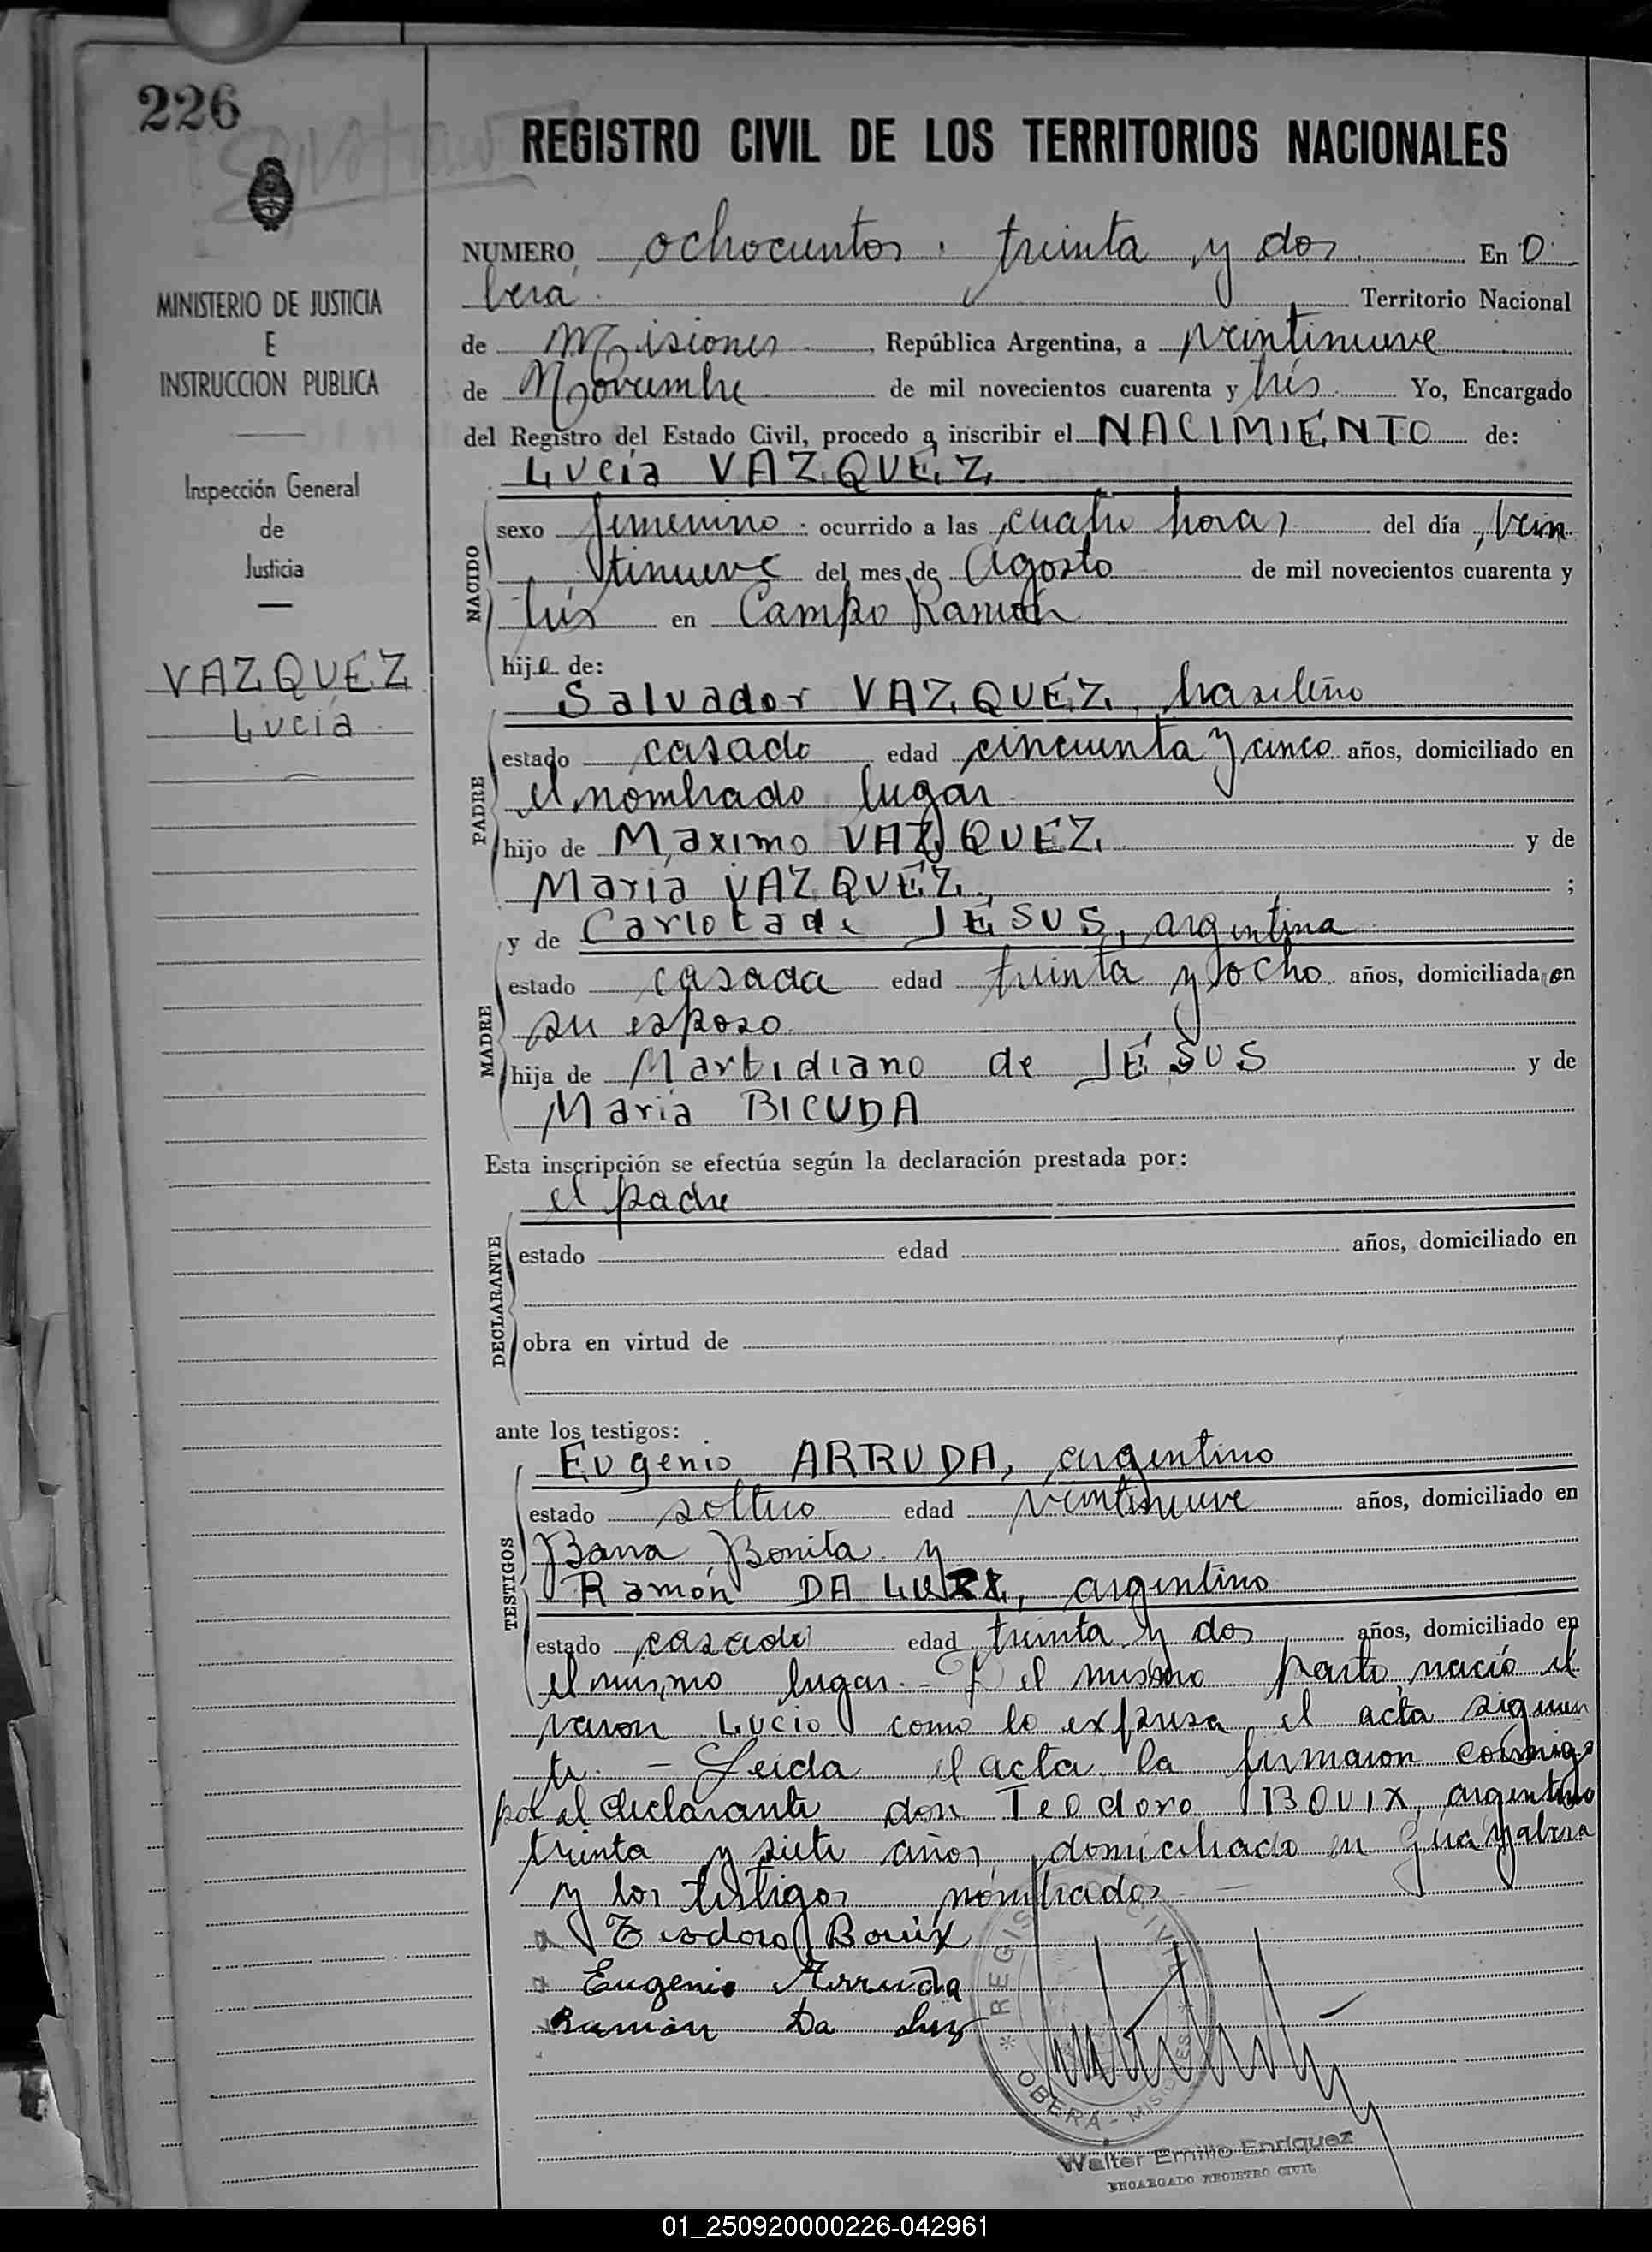 226
REGISTRO CIVIL DE LOS TERRITORIOS NACIONALES
NUMERO ochocientos treinta y dos En O
berá Territorio Nacional
de Misiones, República Argentina, a veintinueve
de Noviembre de mil novecientos cuarenta y tres Yo, Encargado
del Registro del Estado Civil, procedo a inscribir el NACIMIENTO de:
Lucía VAZQUEZ
MINISTERIO DE JUSTICIA
E
INSTRUCCION PUBLICA
Inspección General
de
Justicia
VAZQUEZ
Lucía
NACIDO
sexo femenino ocurrido a las cuatro horas del día vein
tinueve del mes de Agosto de mil novecientos cuarenta y
tres en Campo Ramón
hija de:
Salvador VAZQUEZ, brasileño
PADRE
estado casado edad cincuenta y cinco años, domiciliado en
el nombrado lugar
hijo de Maximo VAZQUEZ y de
María VAZQUEZ ;
y de Carlota de JESUS, argentina
MADRE
estado casada edad treinta y ocho años, domiciliada en
su esposo
hija de Martidiano de JESUS y de
María BICUDA
Esta inscripción se efectúa según la declaración prestada por:
el padre
DECLARANTE
estado edad años, domiciliado en
obra en virtud de
ante los testigos:
TESTIGOS
Eugenio ARRUDA, argentino
estado soltero edad veintinueve años, domiciliado en
Barra Bonita y
Ramón DA LUZ, argentino
estado casado edad treinta y dos años, domiciliado en
el mismo lugar.- el mismo parto nació el
varon Lucio como lo expresa el acta siguien
te. - Leida el acta la firmaron conmigo
por el declarante don Teodoro BOUIX, argentino
treinta y siete años, domiciliado en Guayabera
y los testigos nombrados
Teodoro Bouix
Eugenio Arruda
Ramón Da Luz
REGISTRO CIVIL
OBERÁ - MISIONES
Walter Emilio Enriquez
ENCARGADO REGISTRO CIVIL
01_250920000226-042961